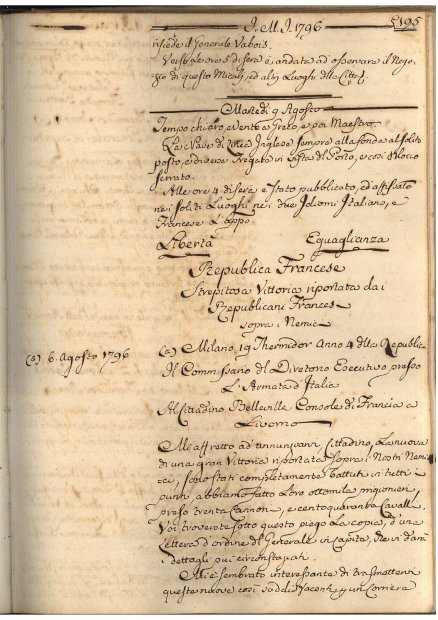 I. M. I. 1796
5195
risiede il Generale Vabois.
Verso le ore 5 di sera è andata ad osservare il Nego-
zio di questo Micali, ed altri Luoghi della Città.
Martedì 9 Agosto
Tempo chiaro, e Vento a Greco, e poi Maestro.
La Nave di Inglese sempre alla fonda al solito
posto, e diverse Fregate in vista di Porto, e così Blocco
serrato.
Alle ore 4 di sera è stato pubblicato, ed affissato
nei soliti Luoghi nei due Idiomi Italiano, e
Francese L'appo:
Libertà
Eguaglianza
Republica Francese
Strepitosa Vittoria riportata dai
Republicani Francesi
sopra i Nemici
(a) 6. Agosto 1796
(a) Milano 19 Thermidor Anno 4 della Republica
Il Commissario del Direttorio Esecutivo presso
L'Armata d'Italia
Al Cittadino Belleville Console di Francia a
Livorno
Mi affretto ad annunziarvi Cittadino, La nuova
di una gran Vittoria riportata sopra i Nostri Nemi-
ci, sono stati completamente battuti in tutti i
punti, abbiamo fatto Loro ottomila prigionieri
preso trenta Cannoni, e centoquaranta Cavalli.
Voi troverete sotto questo piego La copia, d'una
Lettera d'ordine del Generale in Capite, che vi darà
dettagli più circostanziati.
Mi è sembrato interessante di trasmettervi
queste nuove così p un Corriere